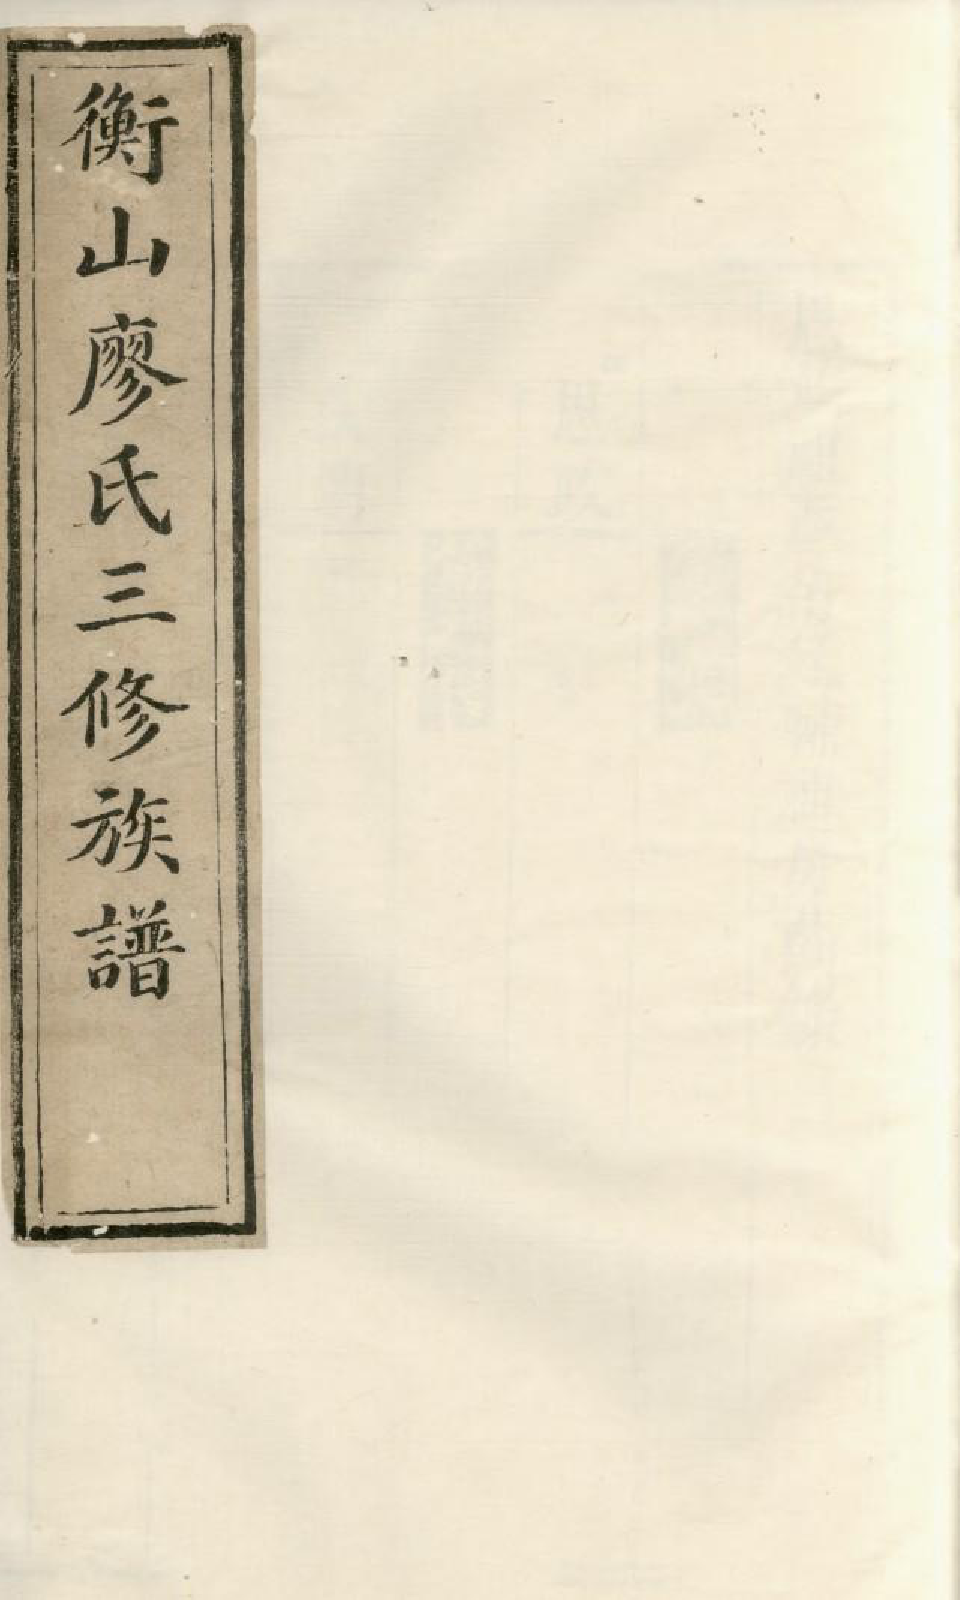 衡山廖氏三修族譜